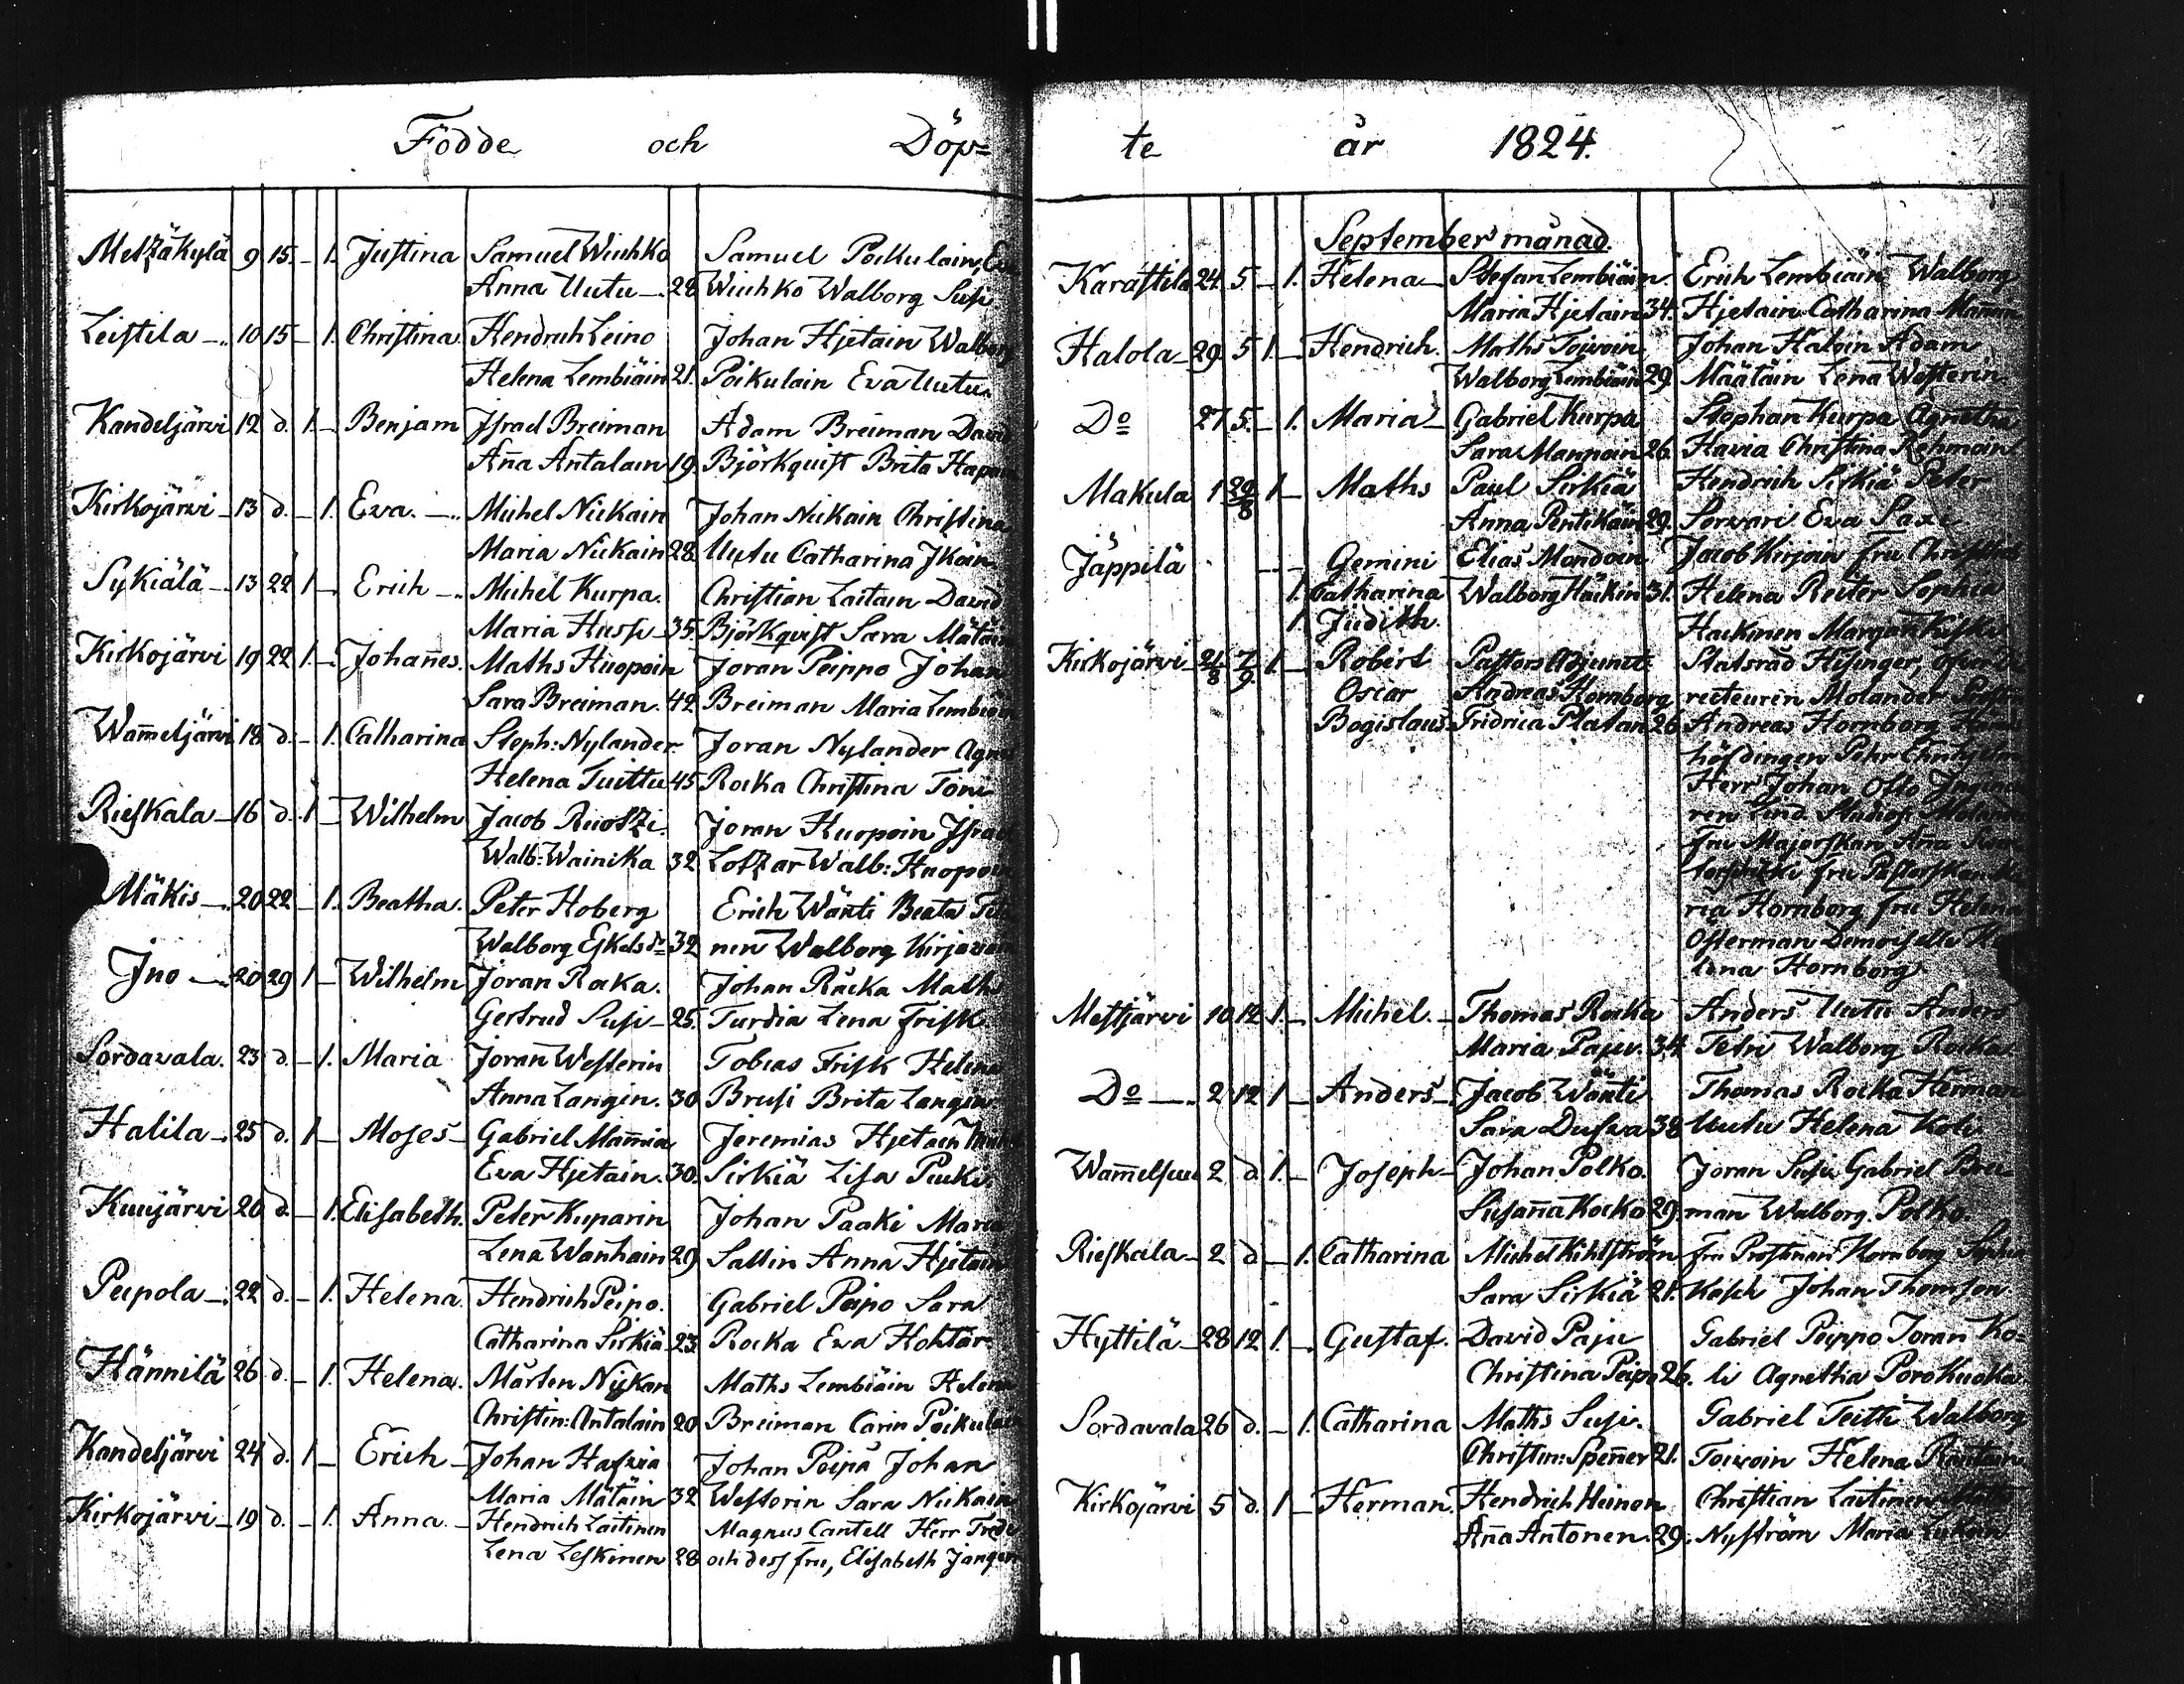 Födde och Döp=
Metzäkylä 9 15. – 1. Justina Samuel Wiuhko Samuel Poikulain, Eva
Anna Uutu – 28 Wiuhko Walborg Susi
Leistila – 10 15 – 1. Christina Hendrich Leino Johan Hjetain Walborg
Helena Lembiäin 21. Poikulain Eva Uutu
Kandeljärvi 12 d. 1. – Benjam Israel Breiman Adam Breiman David
Aña Antalain 19 Björkquist Brita Hapain
Kirkojärvi – 13 d. – 1. Eva. – Michel Niikain Johan Niikain Christina
Maria Niikain 28. Uutu Catharina Ikäin
Sykiälä – 13 22 1 – Erich – Michel Kurpa. Christian Laitain David
Maria Hussi – 35. Björkquist Sara Mätäin
Kirkojärvi 19 22 1. – Johañes. Maths Huopoin Joran Peippo Johan
Sara Breiman. 42 Breiman Maria Lembiäin
Wam̃eljärvi 18 d. – 1. Catharina Steph: Nylander Joran Nylander Agne
Helena Tuittu 45 Rocka Christina Toivi
Rieskala – 16 d. 1 – Wilhelm Jacob Ruotzi. Joran Huopoin Israel
Walb: Wainika 32 Lotzar Walb: Huopoin
Mäkis – 20 22 – 1. Beatha. Peter Hoberg Erich Wänti Beata Tih
Walborg Eskelsdr 32 nen Walborg Kirjavain
Ino – 20 29 1 – Wilhelm Joran Rocka. Johan Räcka Maths
Gertrud Susi – 25. Turdia Lena Frisk
Sordavala. 23 d. – 1. Maria Joran Westerin Tobias Frisk Helena
Anna Langin. 30 Brusi Brita Langin
Halila – 25 d. 1 – Moses – Gabriel Mañnia Jeremias Hjetain
Eva Hjetain. 30. Sirkiä Lisa Puuki.
Kuujärvi 20 d. – 1. Elisabeth. Peter Kuparin Johan Paaki Maria
Lena Wanhain 29 Sallin Anna Hjetain
Peipola – 22 d. – 1. Helena. Hendrich Peipo. Gabriel Peipo Sara
Catharina Sirkiä 23. Rocka Eva Hohtar
Hännilä 26 d. – 1. Helena. Mårten Nykan Maths Lembiäin Helena
Christin: Antalain 20 Breiman Carin Poikulain
Kandeljärvi 24 d. 1 – Erich – Johan Hafvia Johan Peipå Johan
Maria Mätäin 32 Westerin Sara Niikain
Kirkojärvi – 19 d. – 1. Anna. – Hendrich Laitinen Magnus Cantell Herr
Lena Leskinen 28 och dess fru, Elisabeth Jangen
te år 1824.
September månad.
Karastila 24. 5 – 1. Helena – Stefan Lembiäin. Erich Lembiäin Walborg
Maria Hjetain 34. Hjetain Catharina
Halola – 29. 5 1. – Hendrich. Maths Toivoin Johan Haloin Adam
Walborg Lembiäin 29. Määtäin Lena Westerin
Do 27 5. – 1. Maria – Gabriel Kurpa Stephan Kurpa Agnetha
Sara Mannoin 26. Havia Christina Rehmoin
Makula 1 29/8 1 – Maths Paul Sirkiä Hendrich Sirkiä Peter
Anna Pentikäin 29. Sorvari Eva Saxi
Jäppilä – – Gemini Elias Mondoin Jacob Kirjoin fru
1. Catharina Walborg Häckin 31. Helena Reiter Sophia
1. Judith Hackinen Margar:
Kirkojärvi – 24/8 7/9. 1 – Robert Pastors Adjunct. Statsråd Hisinger,
Oscar Andreas Hornborg recteuren Molander
Bogislaus Fridrica Platan 26 Andreas Hornborg
höfdingen Pehr
Herr Johan Otto
ren Lind
fru Majorskan Aña
fru Pastorskan
ria Hornborg fru Helena
Österman Demoiselle
lena Hornborg
Metsjärvi 10 12 1. – Michel. – Thomas Rocka Anders Uutu Anders
Maria Paju. 34 Tetri Walborg Rocka
Do – 2 12 1 – Anders – Jacob Wänti Thomas Rocka Herman
Sara Dufva 38 Uutu Helena Koli
Wam̃elsuu 2 d. 1. – Joseph – Johan Polko. Joran Susi Gabriel Brei
Susaña Kocko 29. man Walborg Polko.
Rieskala – 2 d – 1. Catharina Michel Kihlström fru Prostinan Hornborg
Sara Sirkiä 21. Johan Thomson
Hyttilä – 28 12 1. – Gustaf. David Paju Gabriel Peippo Joran Ko=
Christina Peipo 26. li Agnetha Porokuoka
Sordavala 26 d. – 1. Catharina Maths Susi. Gabriel Teitti Walborg
Christin: Speñer 21. Toivoin Helena Rantain
Kirkojärvi 5 d. 1 – Herman. Hendrich Heinon Christian Laitinen
Aña Antonen. 29. Nyström Maria